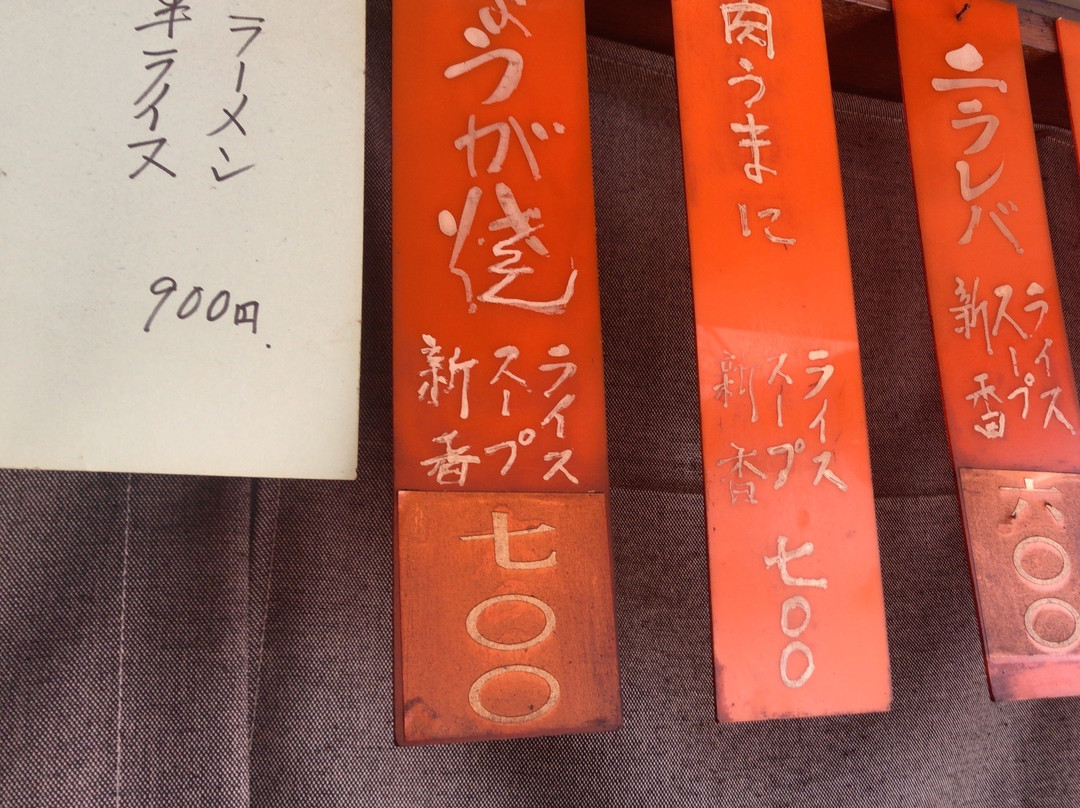 ラーメン
半ライス
900円
ょうが焼
ライス
スープ
新香
七〇〇
肉うまに
ライス
スープ
新香
七〇〇
ニラレバ
ライス
スープ
新香
六〇〇